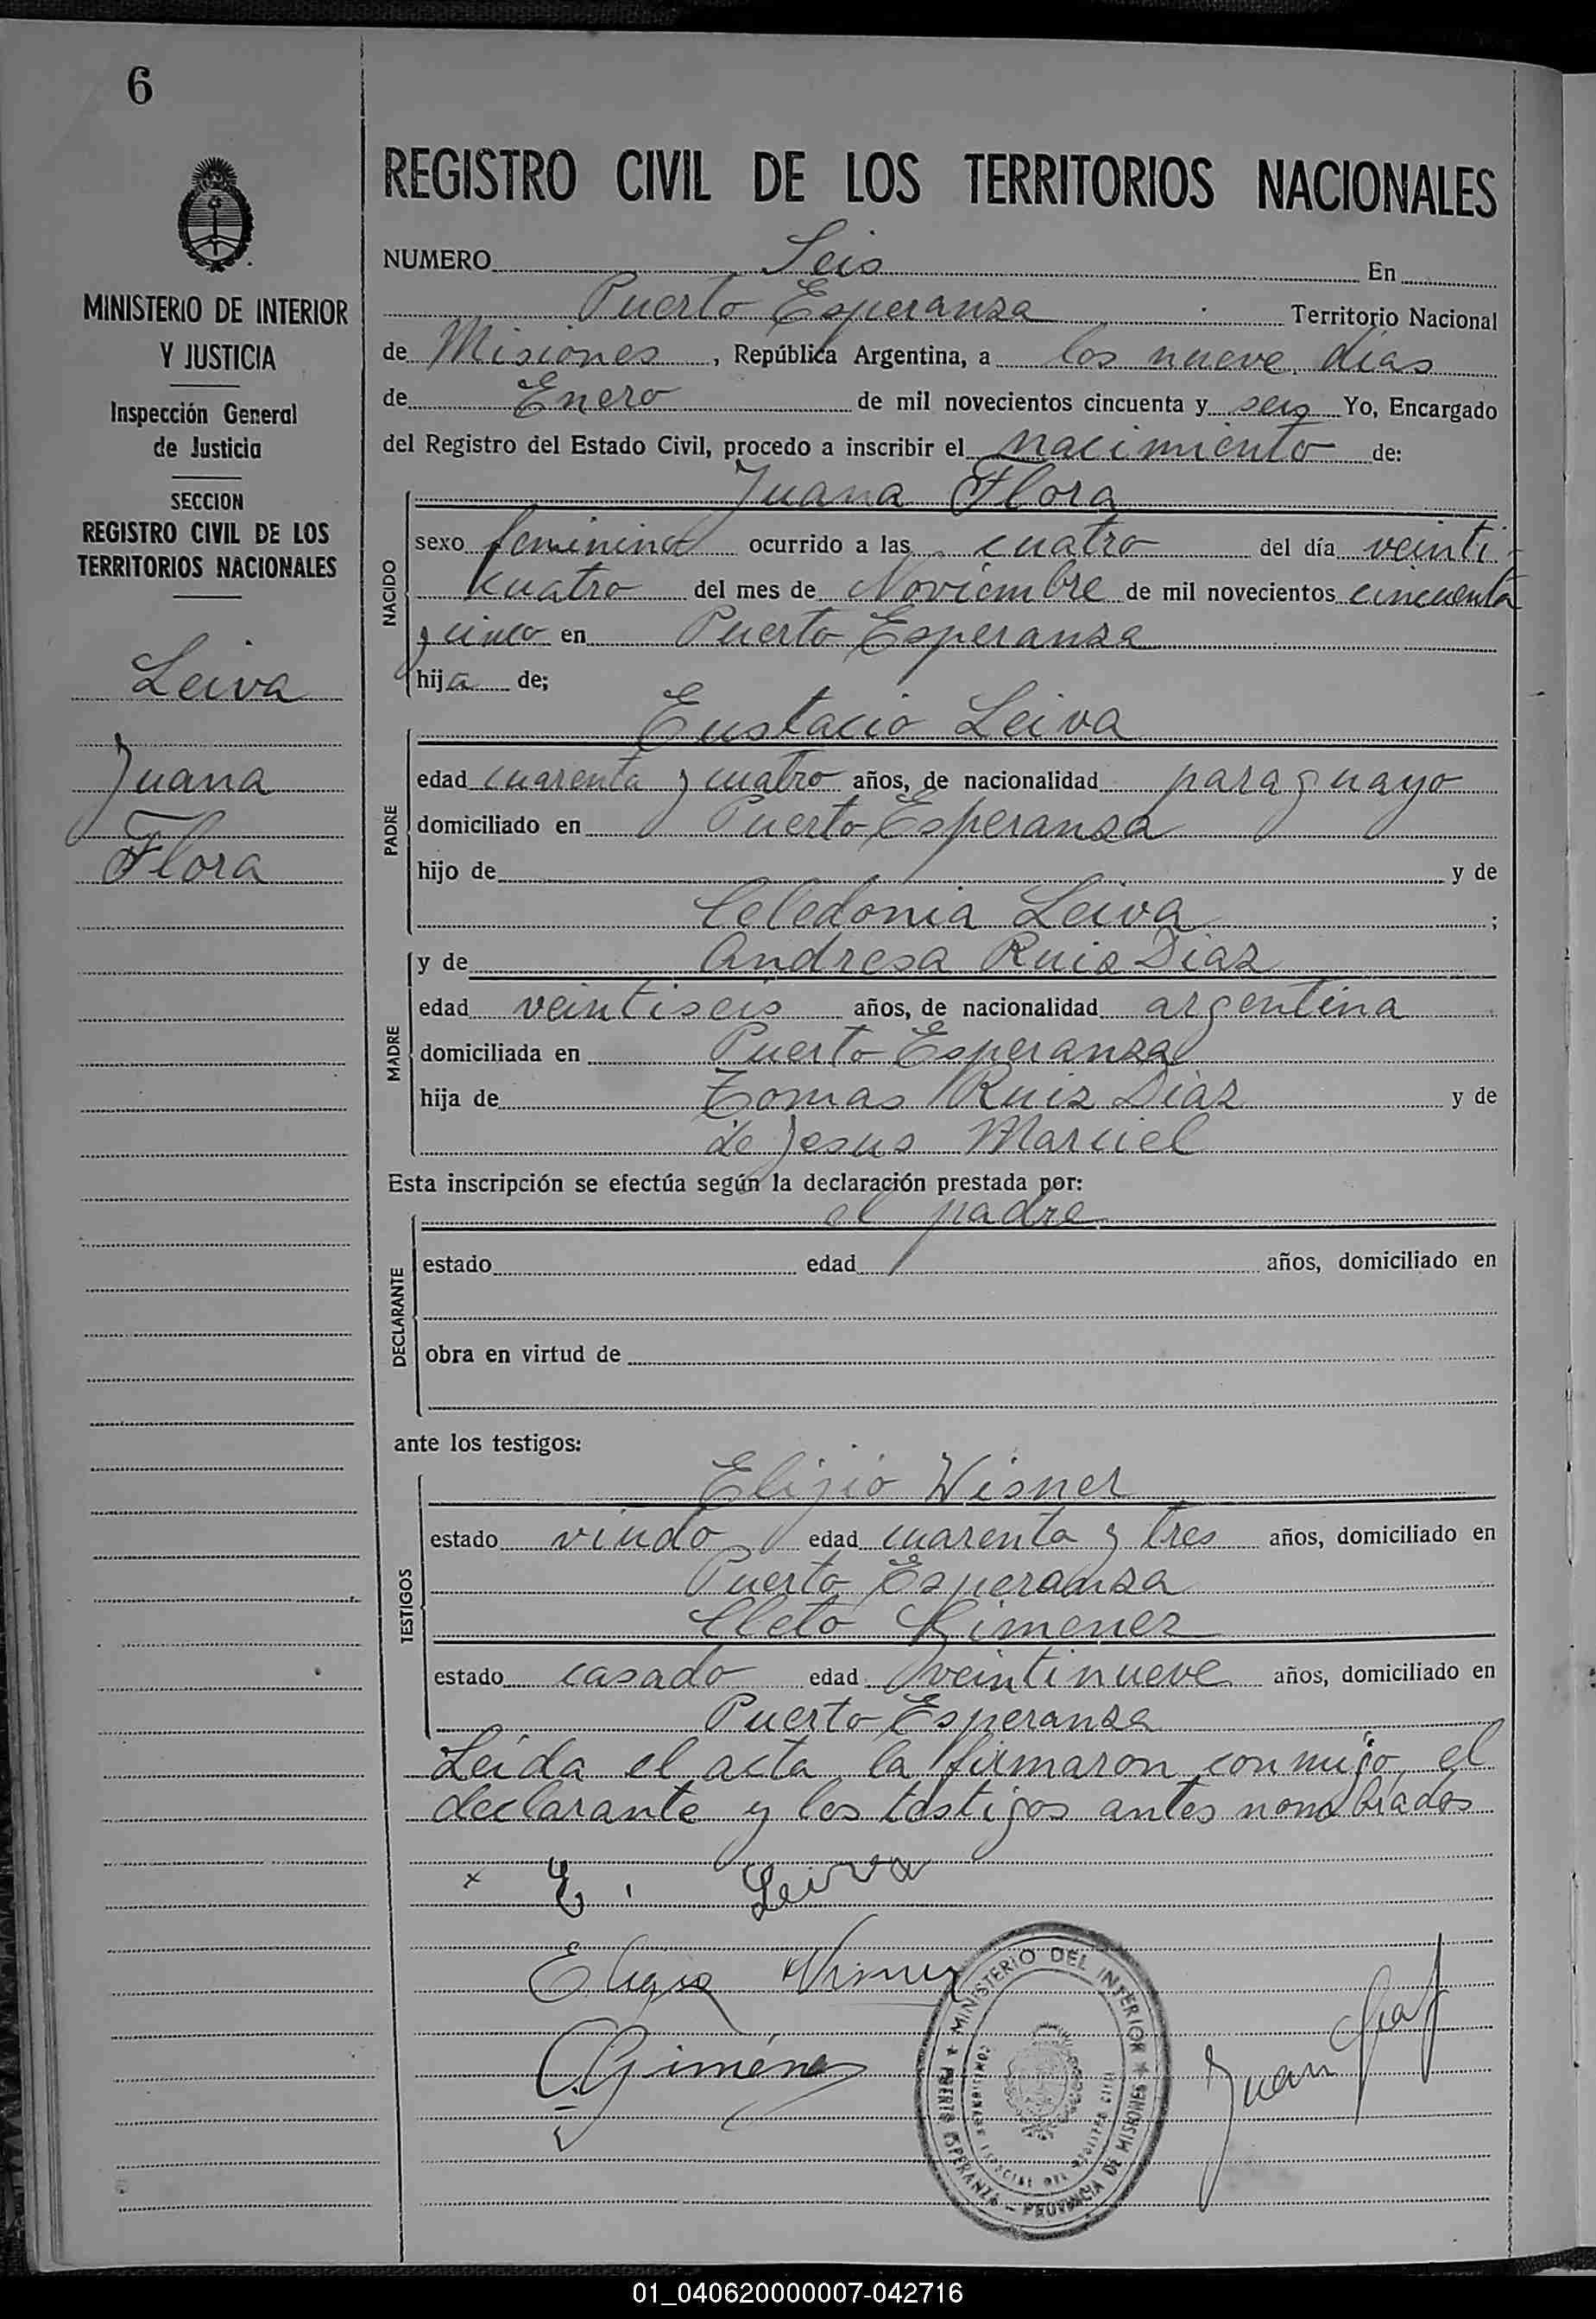 6
MINISTERIO DE INTERIOR
Y JUSTICIA
Inspección General
de Justicia
SECCION
REGISTRO CIVIL DE LOS
TERRITORIOS NACIONALES
Leiva
Juana
Flora
REGISTRO CIVIL DE LOS TERRITORIOS NACIONALES
NUMERO Seis En
Puerto Esperanza Territorio Nacional
de Misiones, República Argentina, a los nueve dias
de Enero de mil novecientos cincuenta y seis Yo, Encargado
del Registro del Estado Civil, procedo a inscribir el nacimiento de:
Juana Flora
NACIDO
sexo feminino ocurrido a las cuatro del día veinti
cuatro del mes de Noviembre de mil novecientos cincuenta
y cinco en Puerto Esperanza
hija de;
Eustacio Leiva
PADRE
edad cuarenta y cuatro años, de nacionalidad paraguayo
domiciliado en Puerto Esperanza
hijo de y de
Celedonia Leiva ;
y de Andresa Ruiz Diaz
MADRE
edad veintiseis años, de nacionalidad argentina
domiciliada en Puerto Esperanza
hija de Tomas Ruiz Diaz y de
de Jesus Marciel
Esta inscripción se efectúa según la declaración prestada por:
el padre
DECLARANTE
estado edad años, domiciliado en
obra en virtud de
ante los testigos:
Elijio Wisner
TESTIGOS
estado viudo edad cuarenta y tres años, domiciliado en
Puerto Esperanza
Cleto Gimenez
estado casado edad veintinueve años, domiciliado en
Puerto Esperanza
Leida el acta la firmaron conmigo, el
declarante y los testigos antes nombrados
x E. Leiva
C. Giménez
MINISTERIO DEL INTERIOR
PROVINCIA DE MISIONES
Juan
01_040620000007-042716